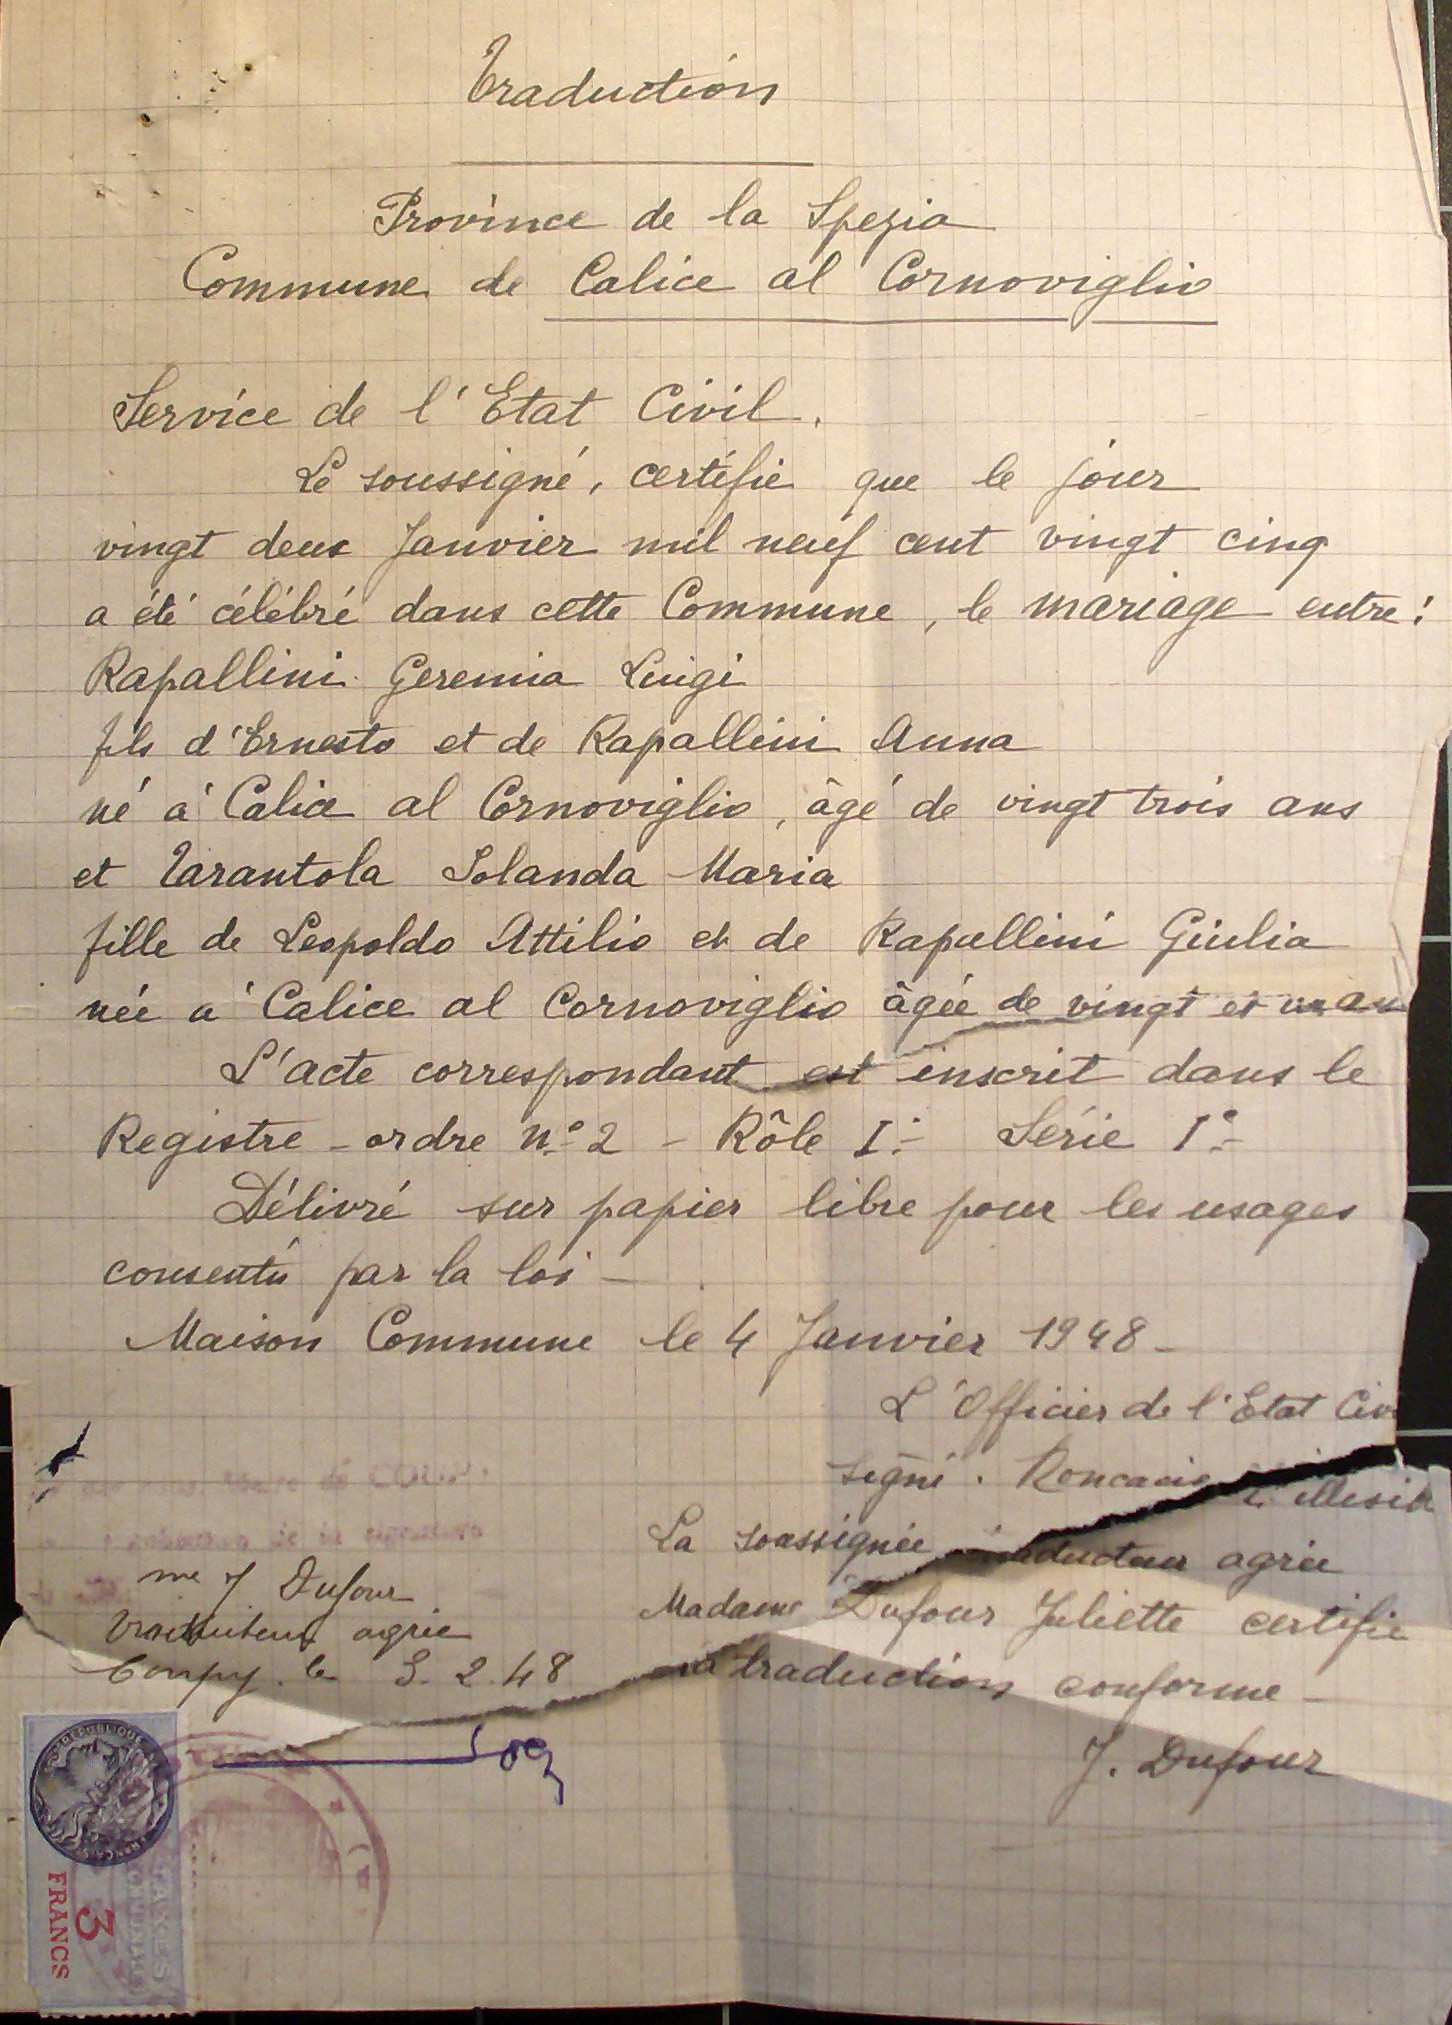 Traduction
Province de la Spezia
Commune de Calice al Cornoviglio
Service de l'Etat Civil.
Le soussigné, certifie que le jour
vingt deux Janvier mil neuf cent vingt cinq
a été célébré dans cette Commune, le mariage entre :
Rapallini Geremia Luigi
fils d'Ernesto et de Rapallini Anna
né à Calice al Cornoviglio, âgé de vingt trois ans
et Tarantola Iolanda Maria
fille de Leopoldo Attilio et de Rapallini Giulia
née à Calice al Cornoviglio âgée de vingt et un an
L'acte correspondant est inscrit dans le
Registre - ordre n° 2 - Rôle I° - Série I° -
Délivré sur papier libre pour les usages
consentis par la loi -
Maison Commune le 4 Janvier 1948 -
L'Officier de l'Etat Civ
signé .
La soussignée traducteur agréé
Madame Dufour Juliette certifie
la traduction conforme -
J. Dufour
de la signature
me J Dufour
traducteur agréé
le 5. 2. 48
3
FRANCS